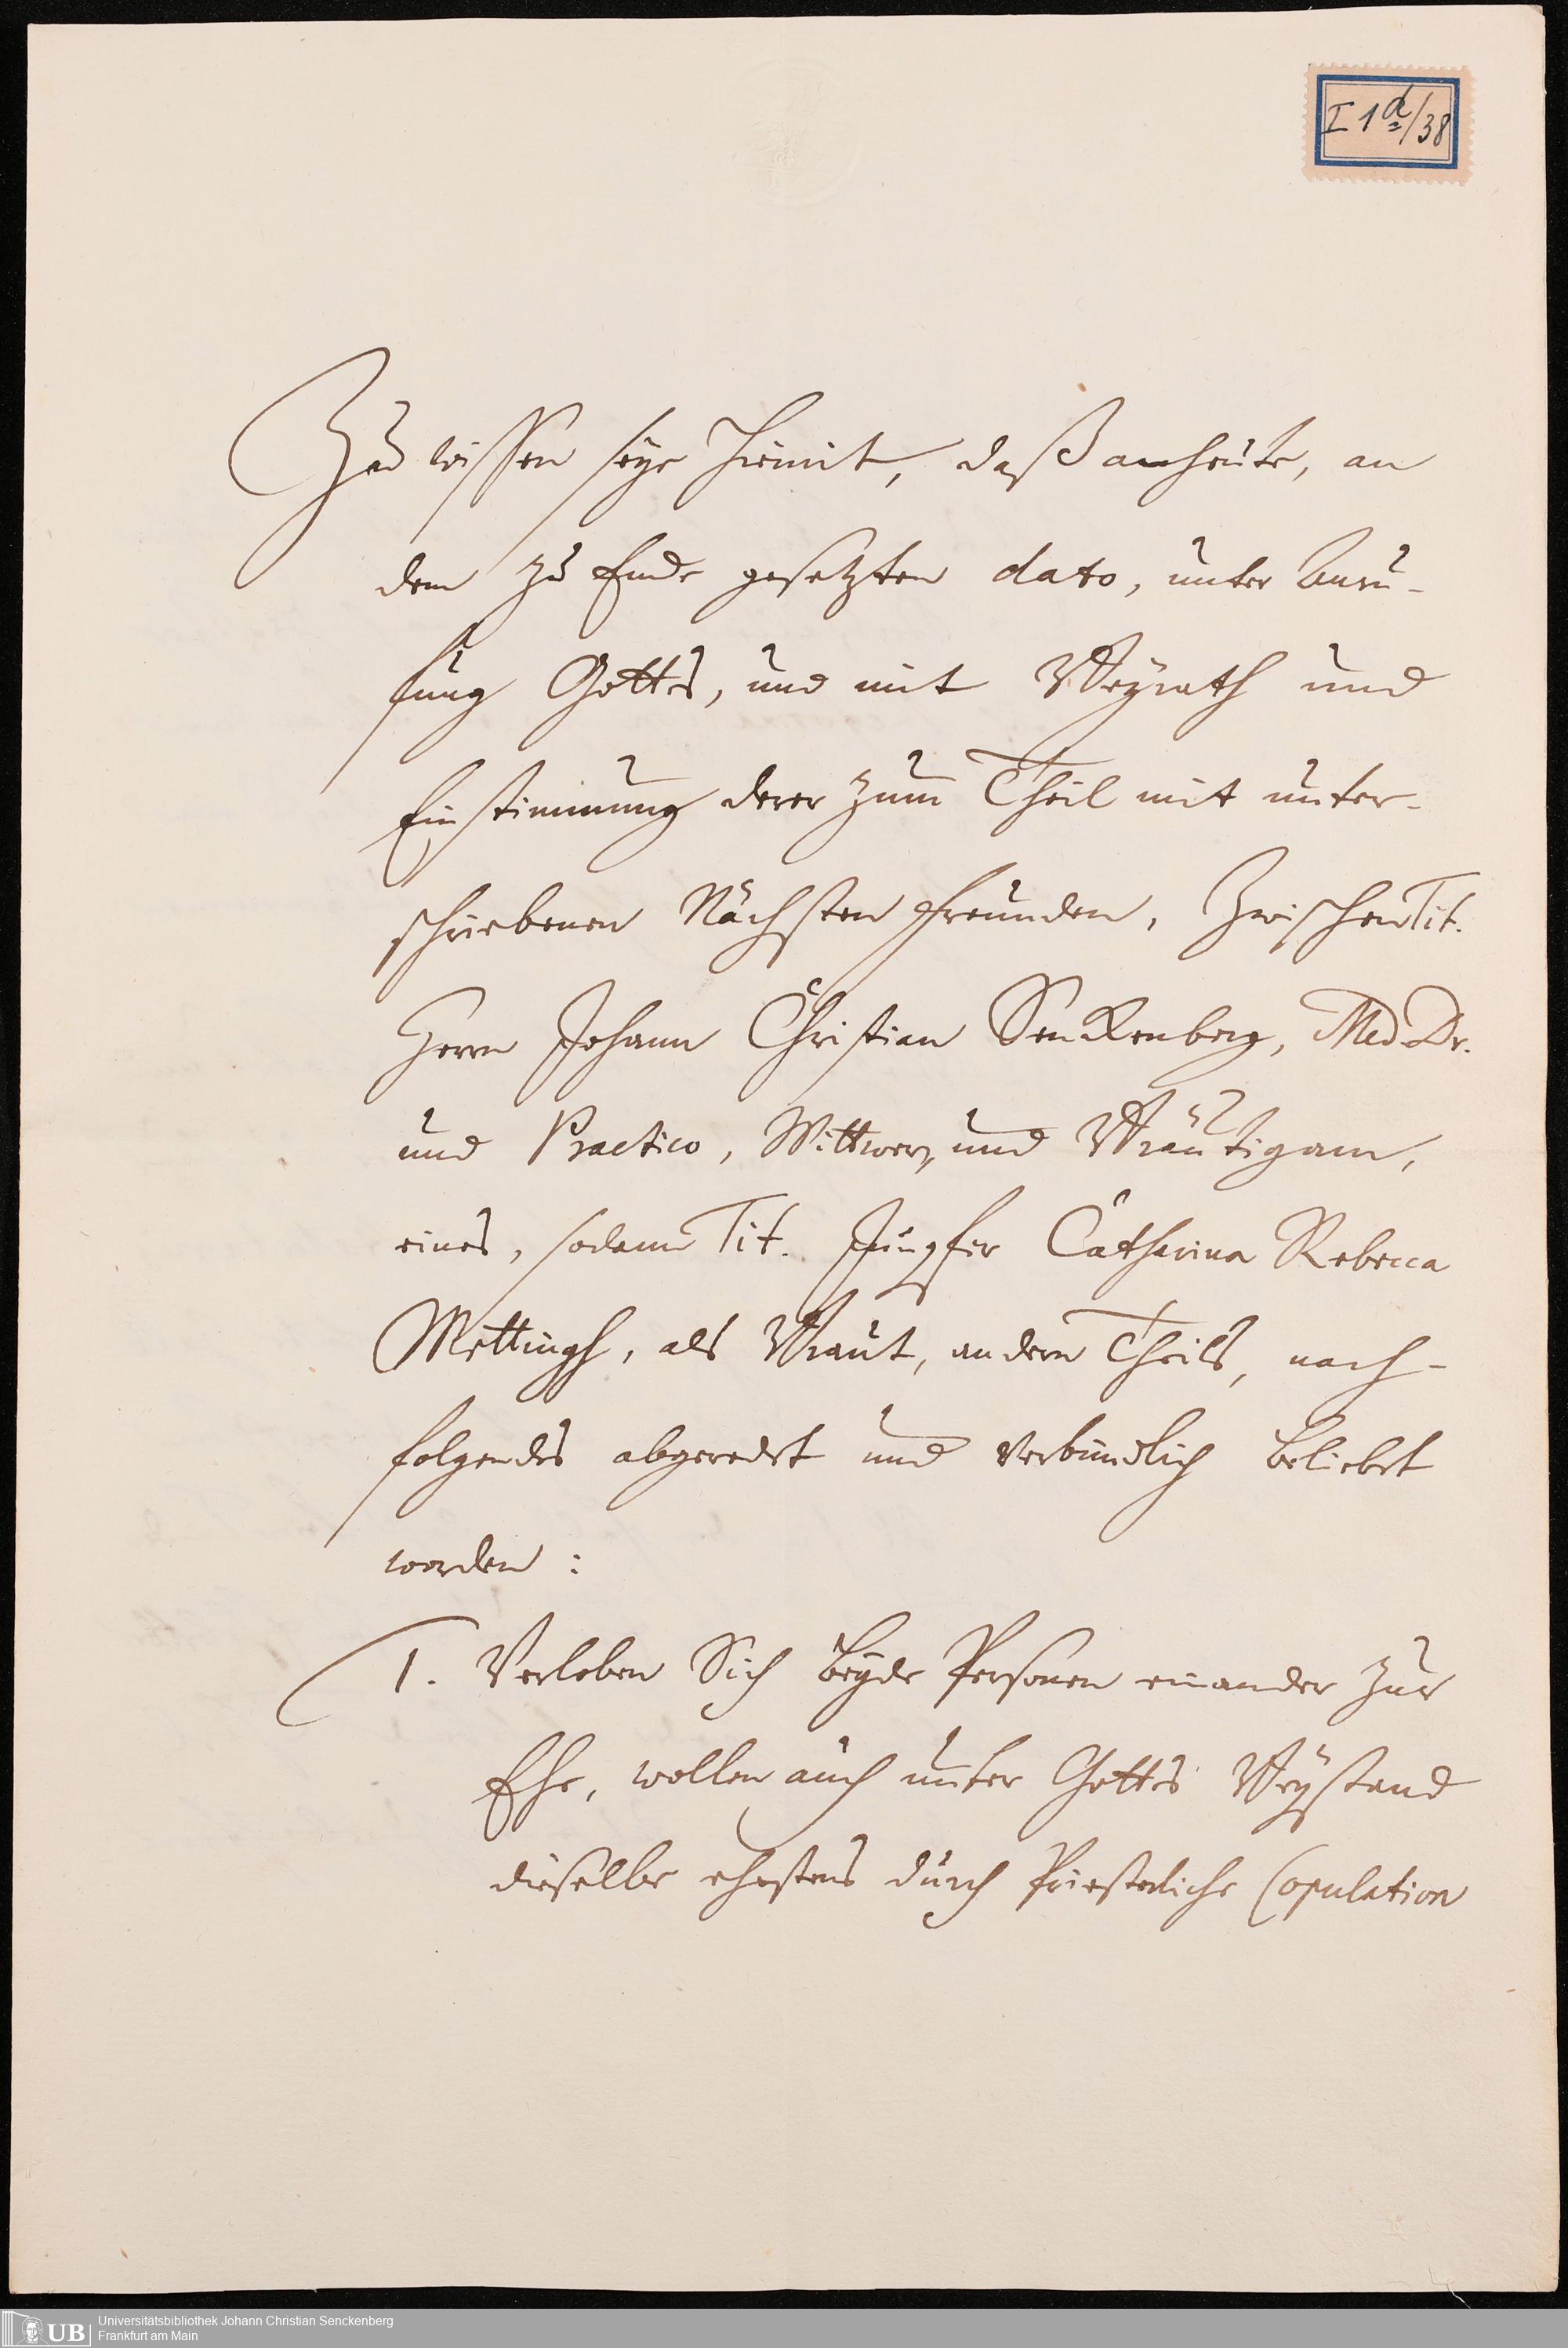 I 1 d/38
Zu wissen seye hiemit, daß anheute, an
dem zu Ende gesetzten dato, unter Anru-
fung Gottes, und mit Beyrath und
Einstimmung derer zum Theil mit unter-
schriebenen Nächsten Freunden, Zwischen Tit.
Herrn Johann Christian Senckenberg, Med. Dr.
und Practico, Wittwer, und Bräutigam,
eines, sodann Tit. Jungfer Catharina Rebecca
Mettingh, als Braut, andern Theils, nach-
folgendes abgeredet und verbindlich beliebet
worden :
1. Verloben Sich beyde Personen einander zur
Ehe, wollen auch unter Gottes Beystand
dieselbe ehestens durch Priesterliche Copulation
UB Universitätsbibliothek Johann Christian Senckenberg
Frankfurt am Main